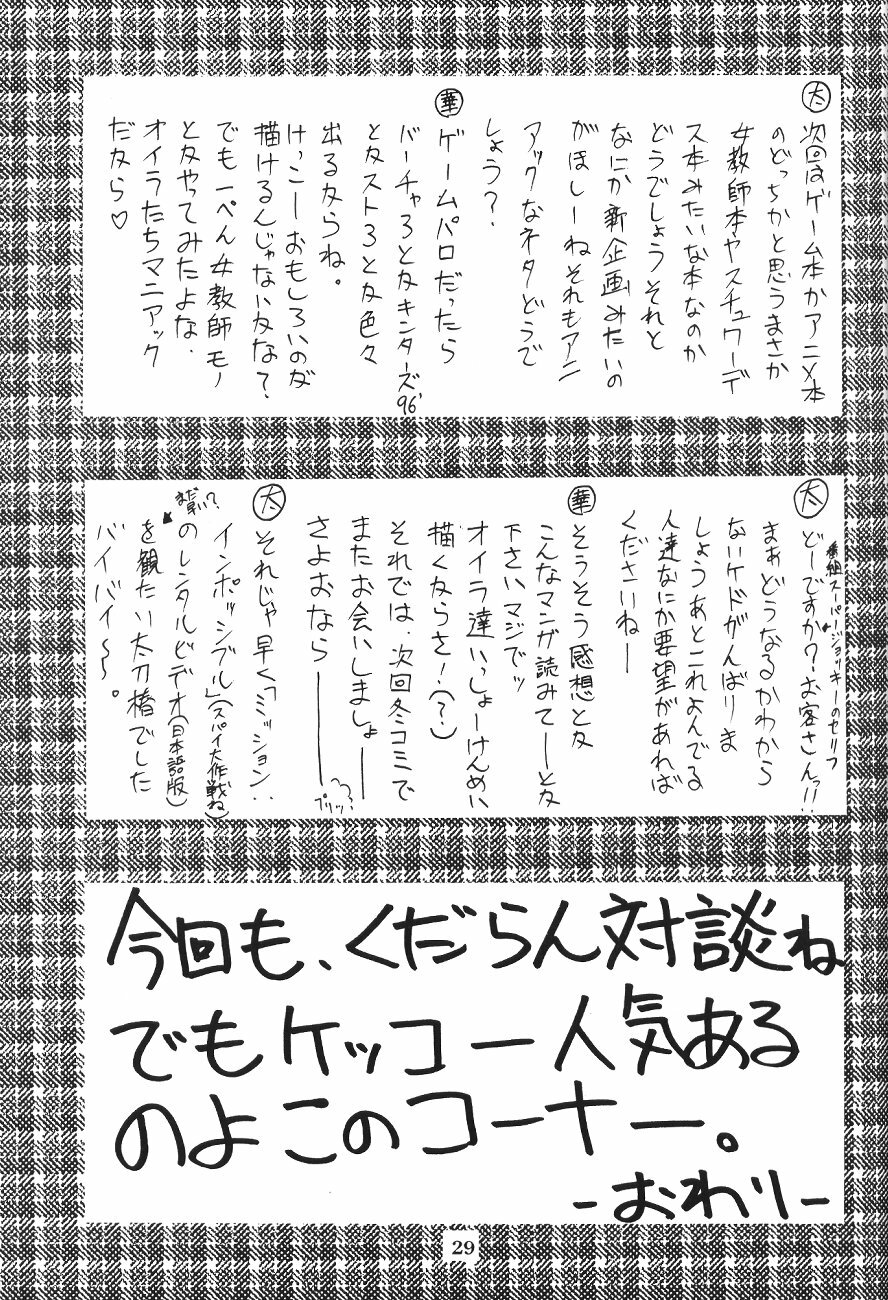 太
次回はゲーム本かアニメ本
のどっちかと思うまさか
女教師本やスチュワーデ
ス本みたいな本なのか
どうでしょうそれと
なにか新企画みたいの
がほしーねそれもアン
アックなネタどうで
しょう?
華
ゲームパロだったら
バーチャ3とかキンターズ96'
とかスト3とか色々
出るからね。
けっこーおもしろいのが
描けるんじゃないかな?
でも一ぺん女教師モノ
とかやってみたよな.
オイラたちマニアック
だから♡
太
番組スーパージョッキーのセリフ
どーですか?お客さんっ!!
まぁどうなるかわから
ないケドがんばりま
しょうあとこれよんでる
人達なにか要望があれば
くださいねー
華
そうそう感想とか
こんなマンガ読みてーーとか
下さいマジでッ
オイラ達いっしょーけんめい
描くからさ!(?)
それでは、次回冬コミで
またお会いしましょーー
さよおならーーーー
プリッ?
太
それじゃ早く「ミッション:
インポッシブル」(スパイ大作戦ね)
まだ早い?
のレンタルビデオ(日本語版)
を観たい太刀椿でした
バイバイ〜。
今回も、くだらん対談ね
でもケッコー人気ある
のよこのコーナー。
-おわり-
29